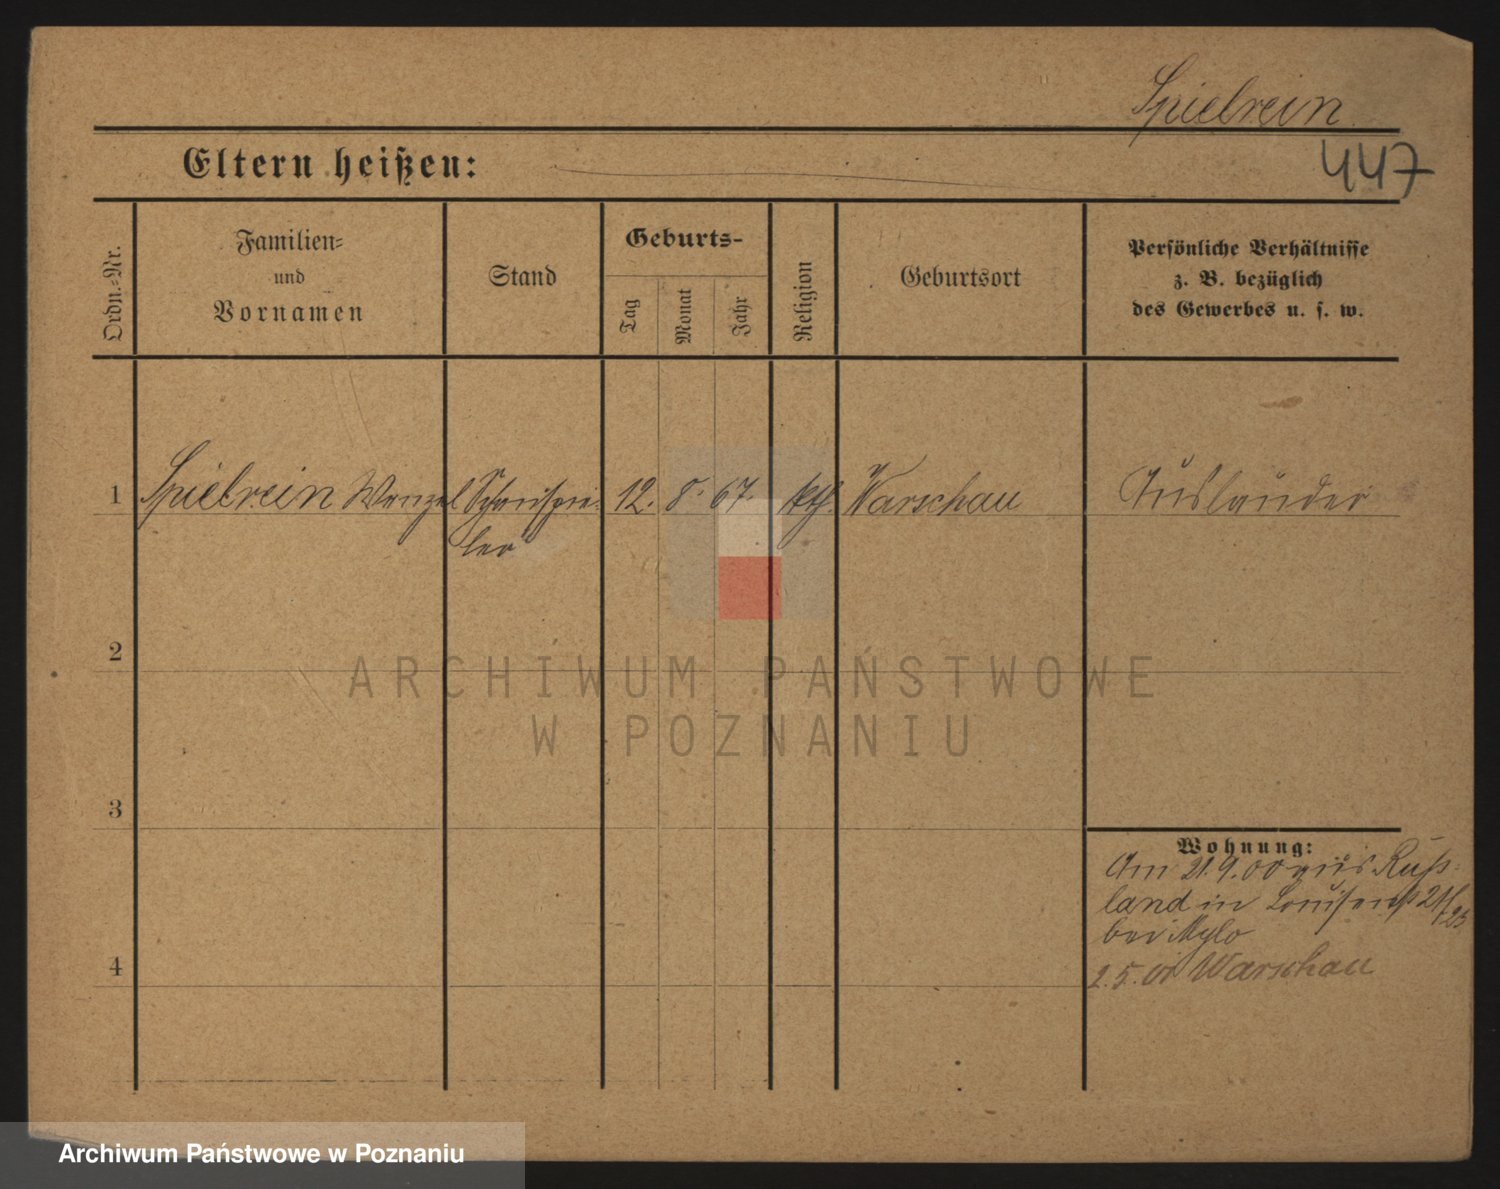 Spielrein
447
Eltern heißen:
Ordn.-Nr.
Familien-
und
Vornamen
Stand
Geburts-
Tag
Monat
Jahr
Religion
Geburtsort
Persönliche Verhältnisse
z. B. bezüglich
des Gewerbes u. s. w.
1 Spielrein Wenzel Schauspie- 12. 8. 67. kth. Warschau Ausländer
ler
2
3
4
Wohnung:
Am 21.9.00 aus Ruß-
land in Louisenst 21/25
bei Mylo
2.5.01 Warschau
ARCHIWUM PAŃSTWOWE
W POZNANIU
Archiwum Państwowe w Poznaniu